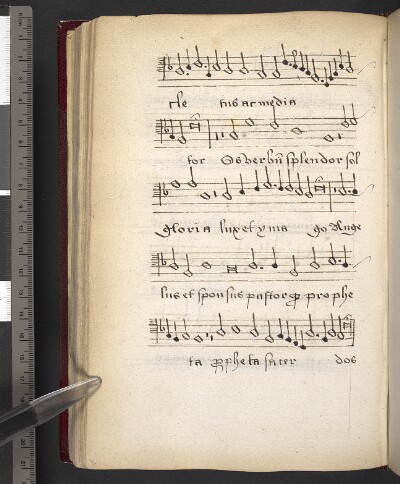 cle tus ac media
tor Os verbũ splendor sol
gloria lux et yma go Ange
lus et sponsus pastor ꝓ prophe
ta ꝓpheta sacer dos